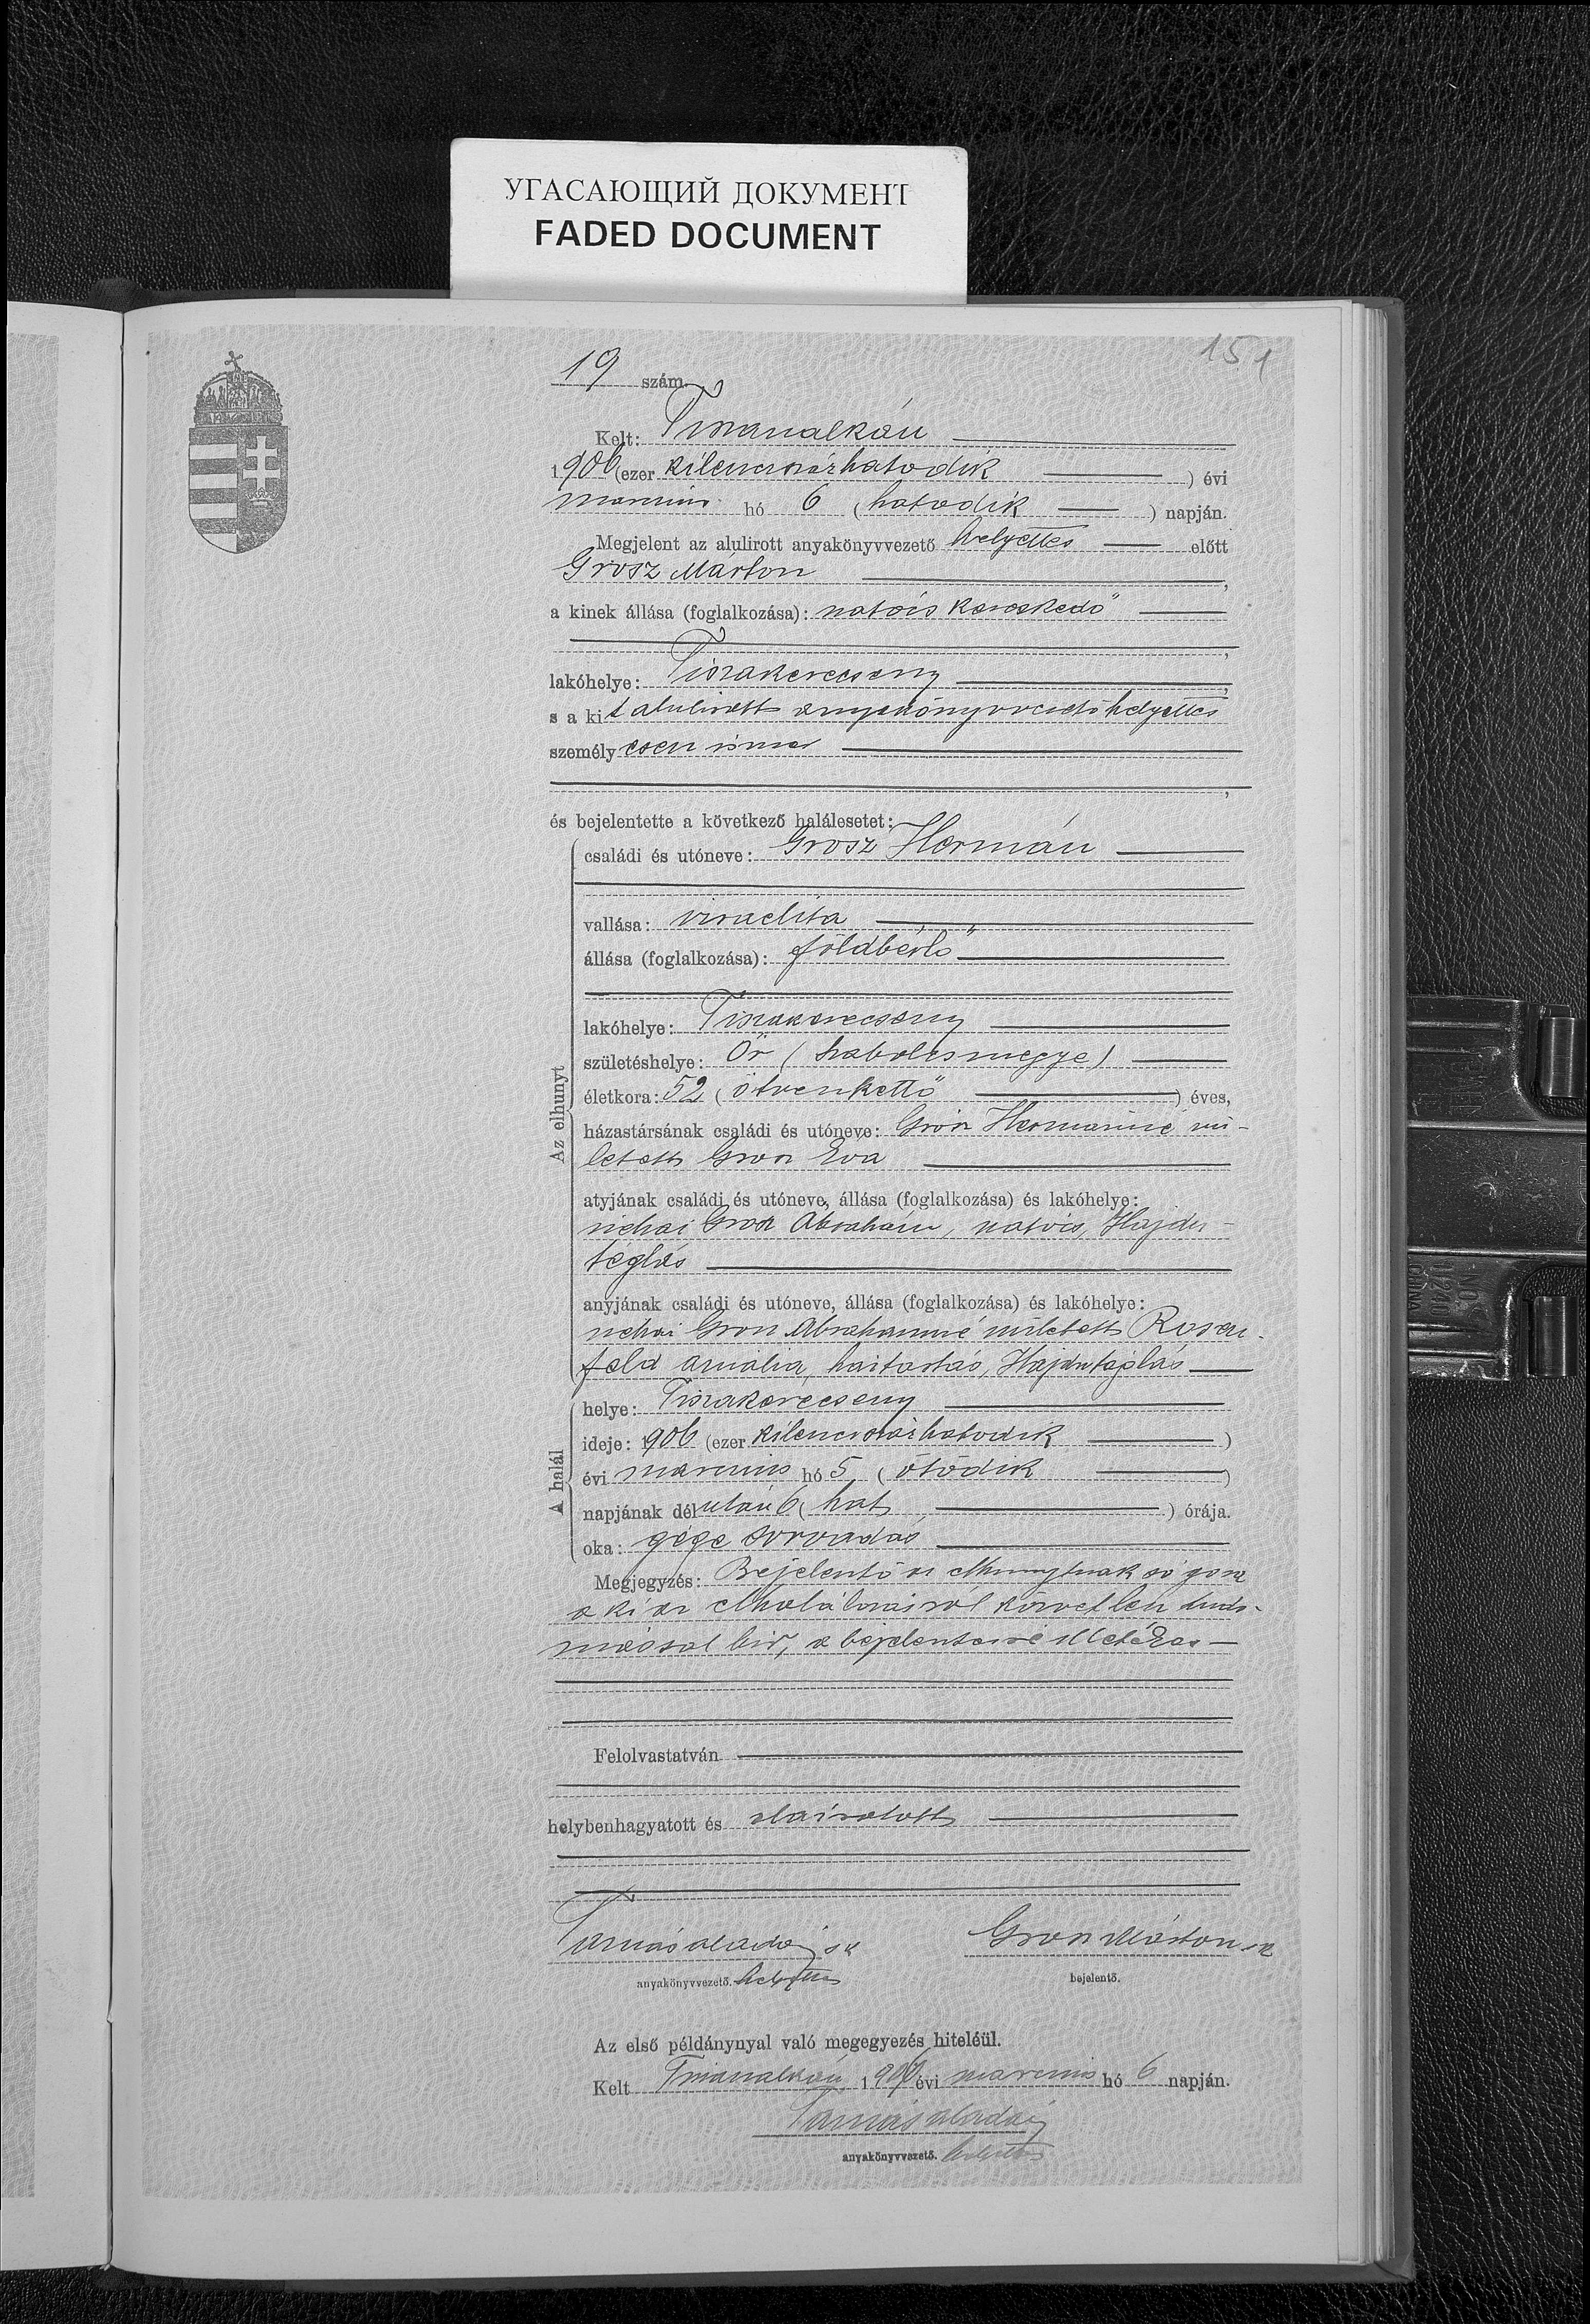 УГАСАЮЩИЙ ДОКУМЕНТ
FADED DOCUMENT
151
19 szám.
Kelt:
1906 (ezer kilencszázhatodik) évi
marcius hó 6 (hatodik) napján.
Megjelent az alulirott anyakönyvvezető helyettes előtt
Grosz Márton,
a kinek állása (foglalkozása): szatócs kereskedő
,
lakóhelye: Tiszakerecseny,
s a kit alulirott anyakönyvvezető helyettes
személyesen ismer
,
és bejelentette a következő halálesetet:
Az elhunyt
családi és utóneve: Grosz Hermán
vallása: izraelita
állása (foglalkozása): földbérlő
lakóhelye: Tiszakerecseny
születéshelye: Őr (Szabolcsmegye)
életkora: 52 (ötvenkettő) éves,
házastársának családi és utóneve: Grósz Hermanné szü-
letett Grosz Eva
atyjának családi és utóneve, állása (foglalkozása) és lakóhelye:
néhai Grosz Abrahám, szatócs, Hajdu-
téglás
anyjának családi és utóneve, állása (foglalkozása) és lakóhelye:
néhai Grosz Abrahamné született Rosen-
feld Amália, háztartás, Hajdutéglás
A halál
helye: Tiszakerecseny
ideje: 1906 (ezer kilencszázhatodik)
évi marcius hó 5 (ötödik)
napjának délután 6 (hat) órája.
oka: gége sorvadás
Megjegyzés: Bejelentő az elhunytnak
a ki az elhalálozásról közvetlen tudo-
mással bir, a bejelentésre illetékes
Felolvastatván
helybenhagyatott és aláiratott
Tamás Aladár sk Grosz Márton sk
anyakönyvvezető. helyettes bejelentő.
Az első példánynyal való megegyezés hiteléül.
Kelt 1906 évi marcius hó 6 napján.
Tamás Aladár
anyakönyvvezető. helyettes